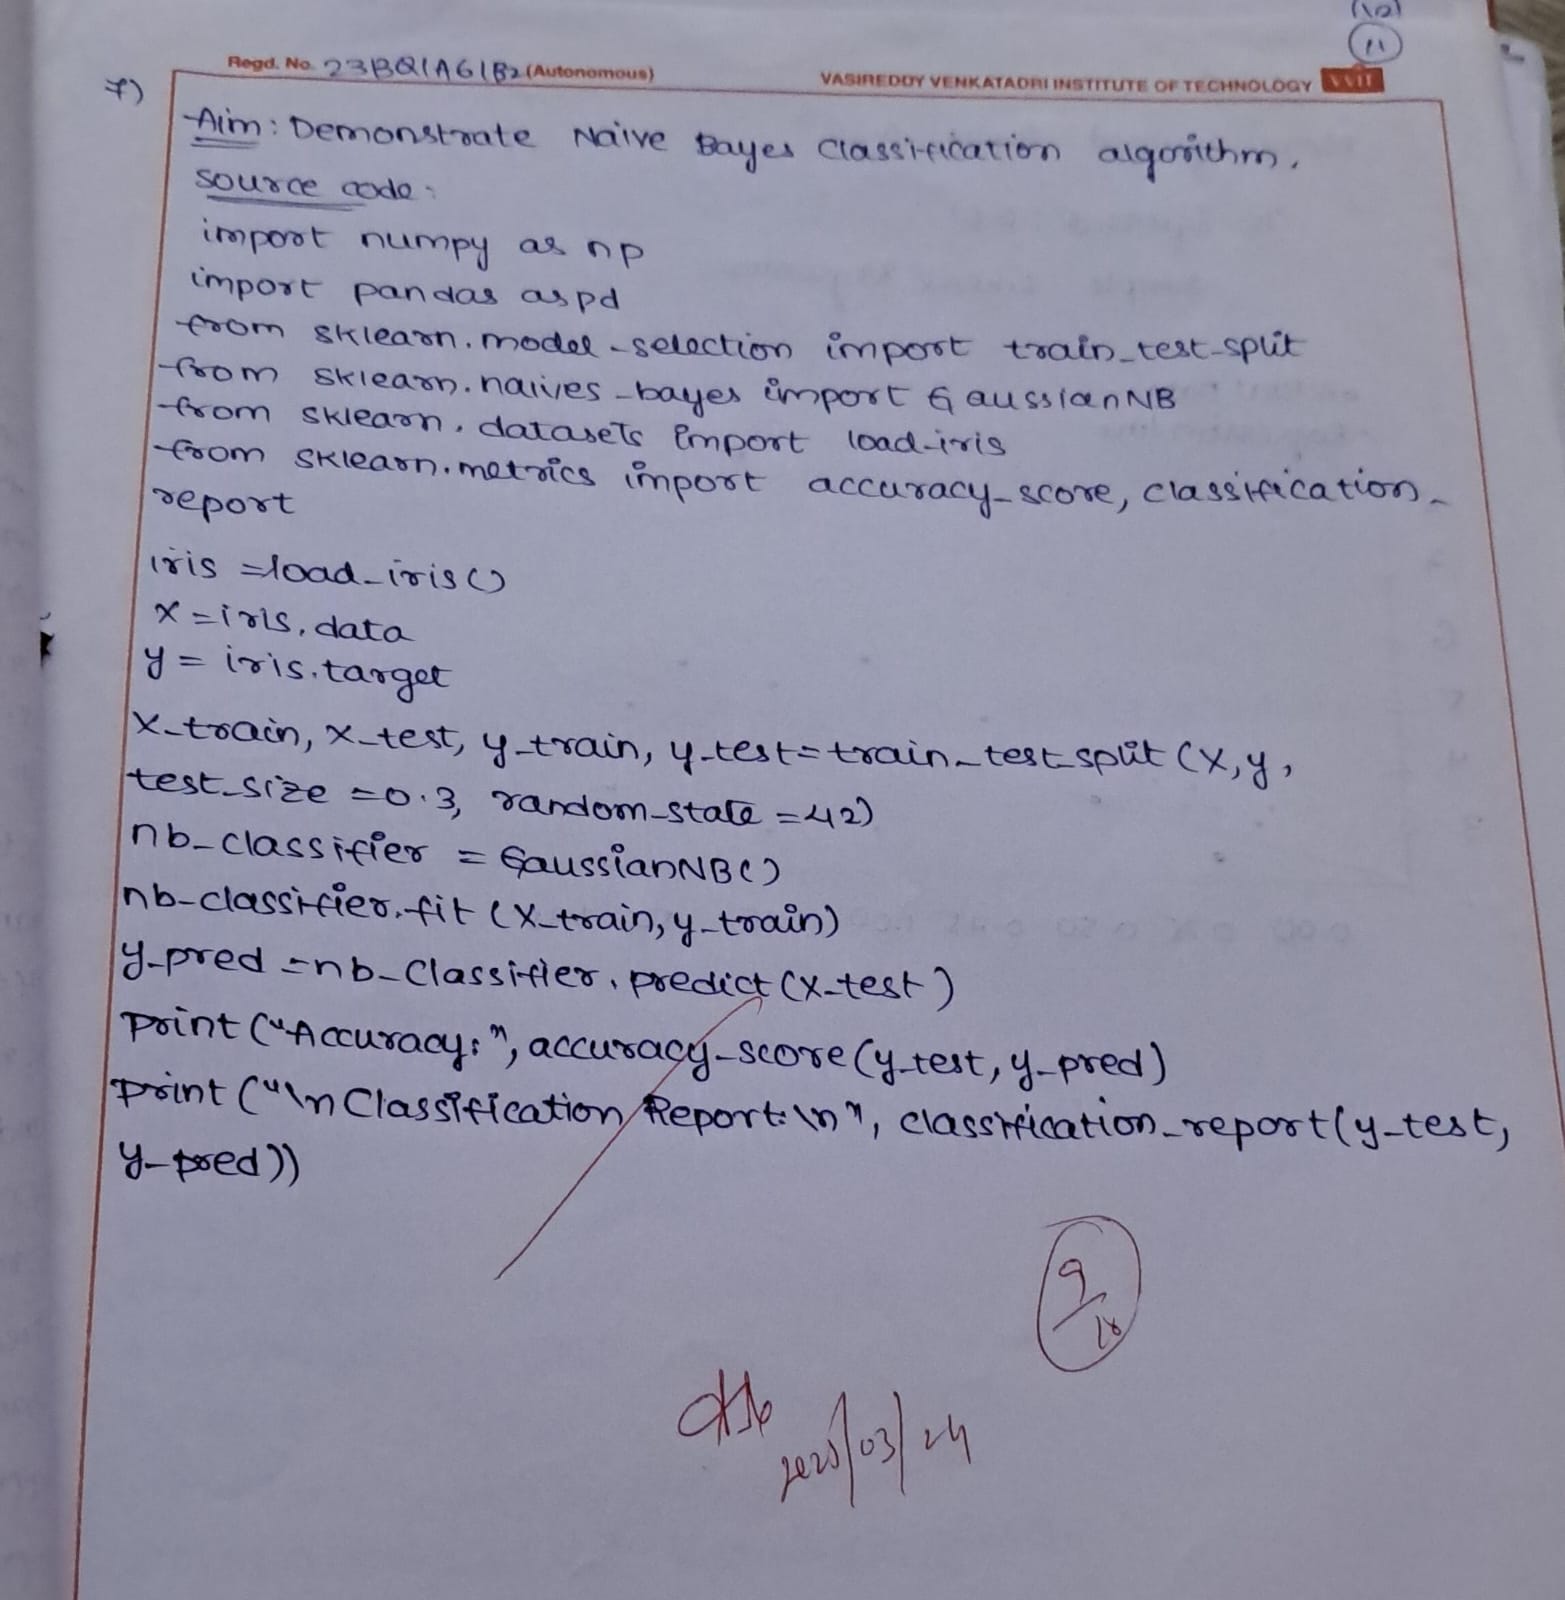 (10)
11
Regd. No. 23BQ1A61B2 (Autonomous) VASIREDDY VENKATADRI INSTITUTE OF TECHNOLOGY VVIT
7)
Aim: Demonstrate Naive Bayes Classification algorithm.
source code:
import numpy as np
import pandas as pd
from sklearn.model_selection import train_test_split
from sklearn.naives_bayes import GaussianNB
from sklearn.datasets import load_iris
from sklearn.metrics import accuracy_score, classification_
report
iris = load_iris()
X = iris.data
y = iris.target
X_train, X_test, y_train, y_test = train_test_split (X, y,
test_size = 0.3, random_state = 42)
nb_classifier = GaussianNB()
nb_classifier.fit (X_train, y_train)
y_pred = nb_classifier.predict (X_test)
print ("Accuracy:", accuracy_score (y_test, y_pred)
print ("\n Classification Report: \n", classification_report(y_test,
y_pred))
9/10
2025/03/24